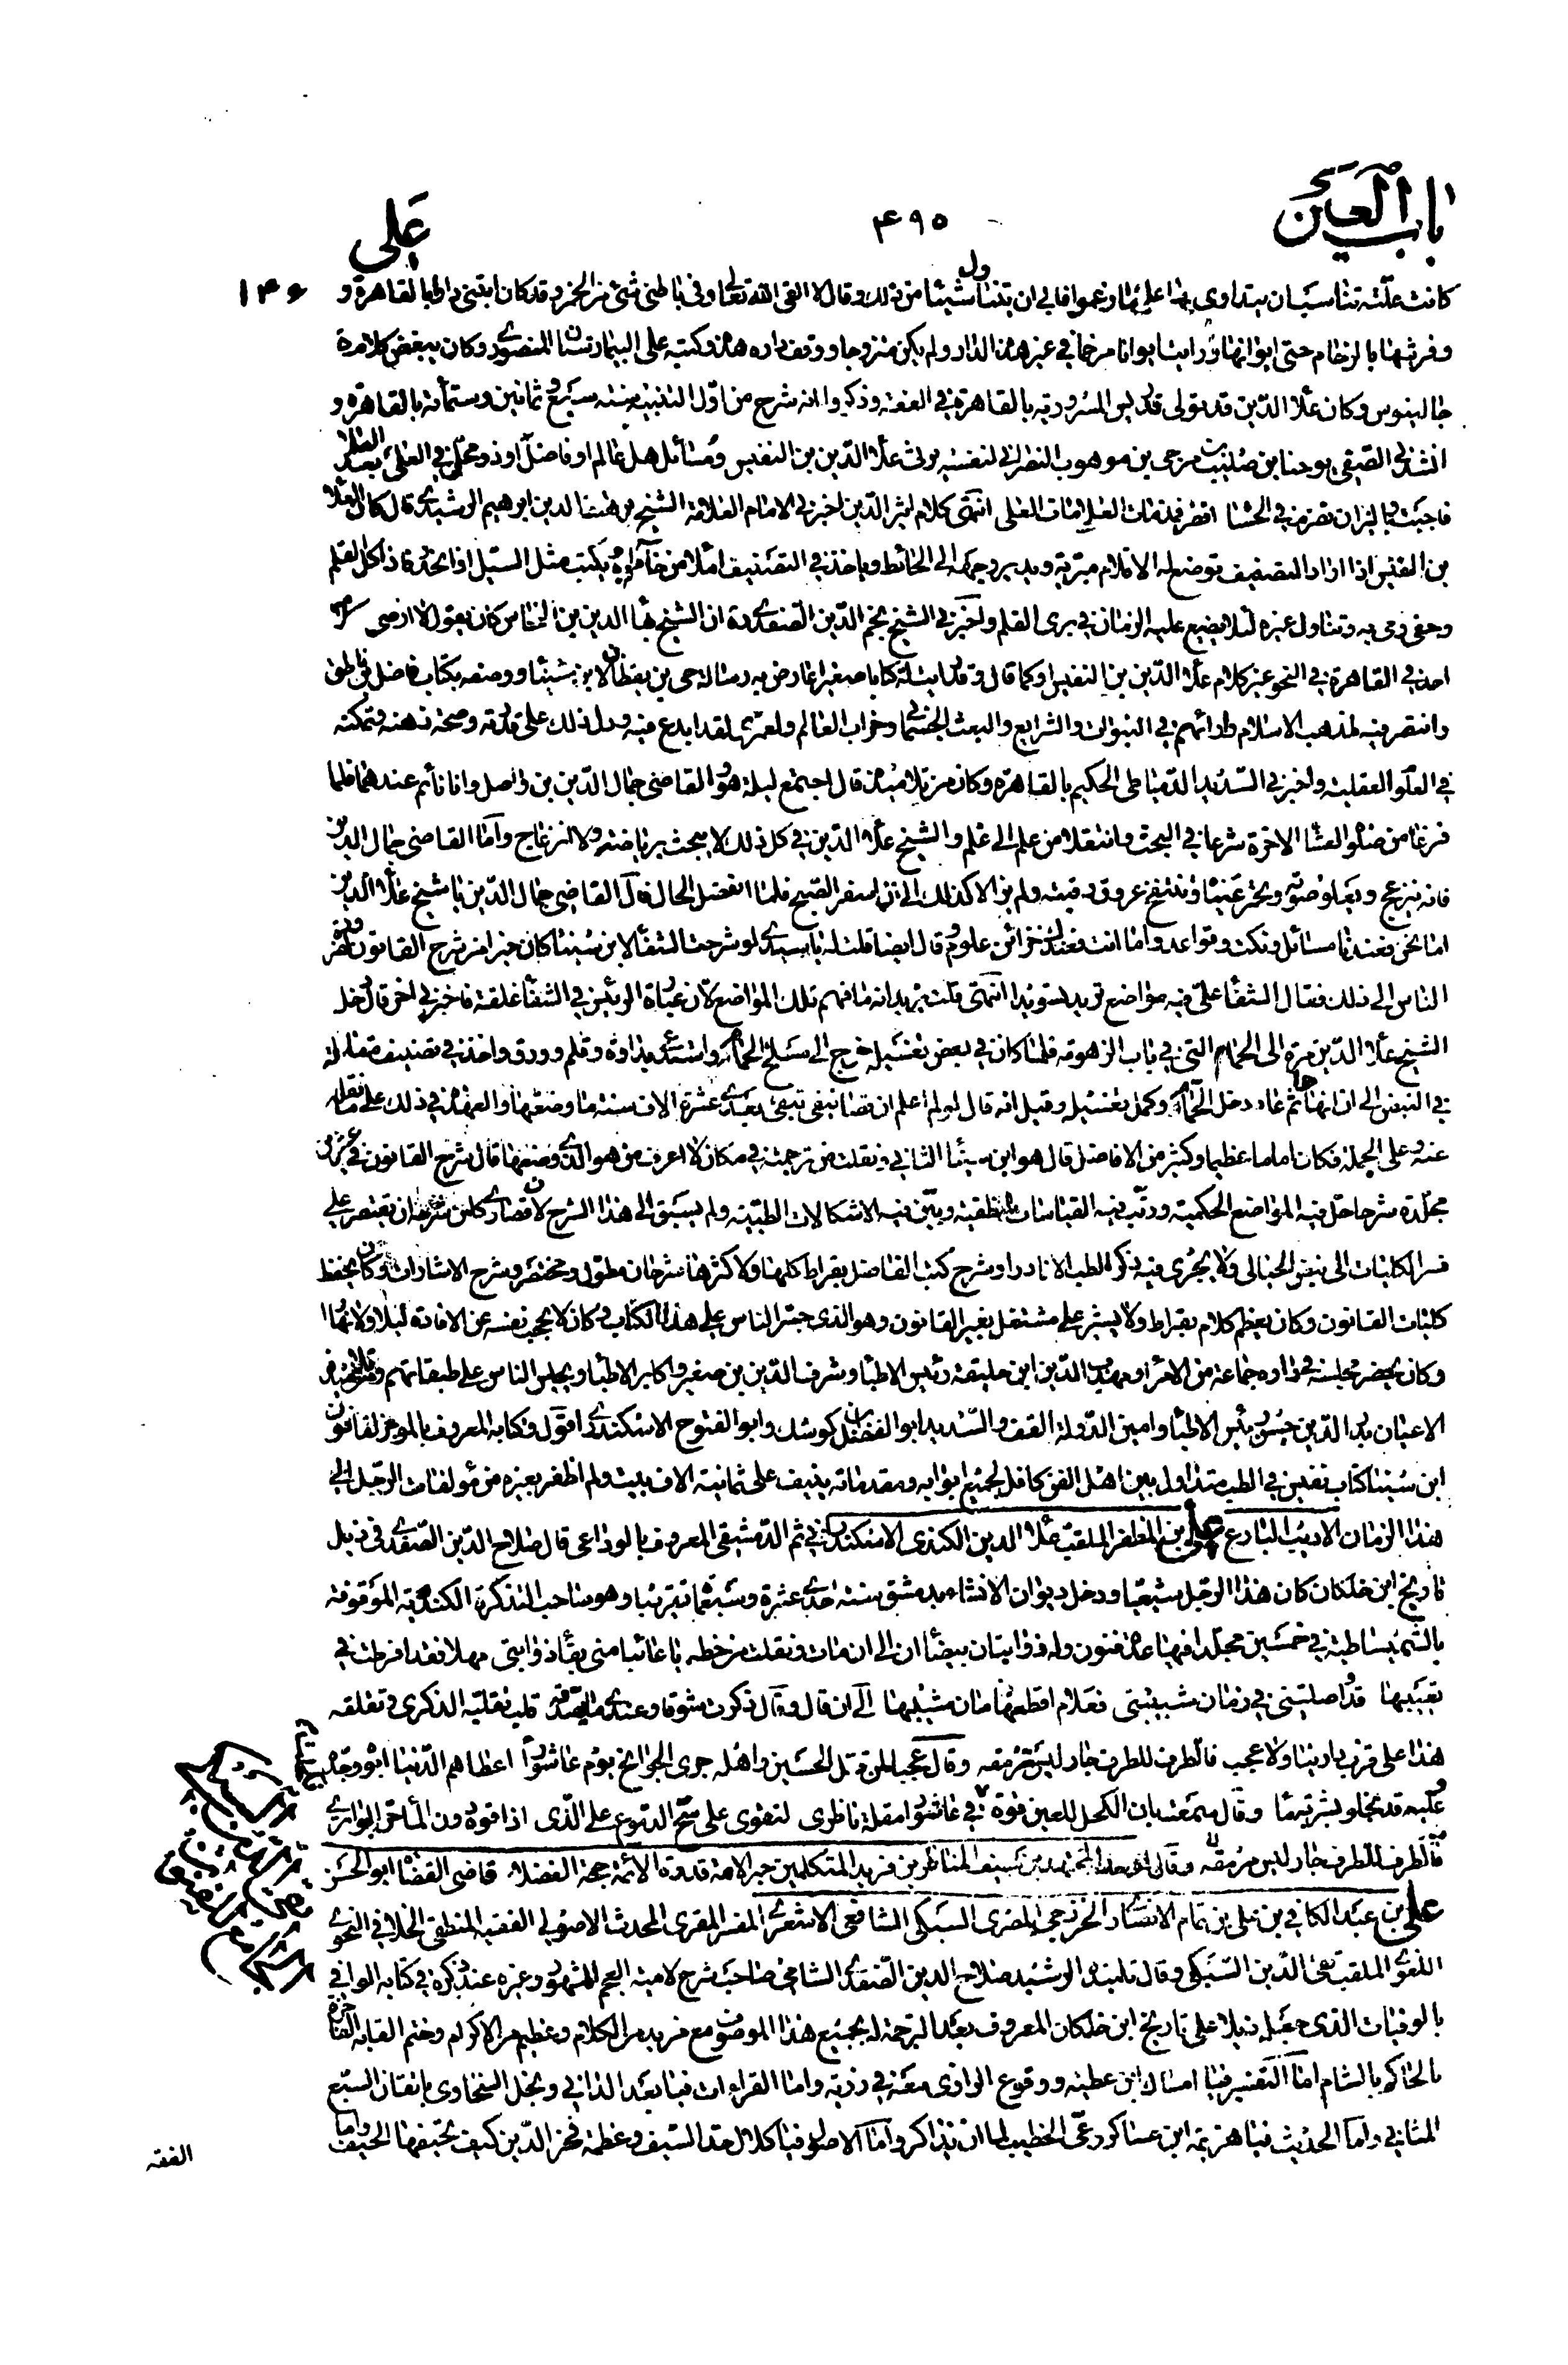 باب العين
۴۹۵
علی
كانت علته تناسب ان يتداوى بها على ما زعموا فابى ان يتناول شيئا من ذلك وقال لا القى الله تعالى وفى باطنى شئ من الخمر وقد كان ابتنى دارا بالقاهرة و
وفرشها بالرخام حتى ايوانها وما رايت ايوانا مرخما فى غير هذه الدار ولم يكن متزوجا ووقف داره هذه وكتبه على البيمارستان المنصورى وكان يبغض كلام
جالينوس وكان علاء الدين قد تولى تدريس المسرورية بالقاهرة فى الفقه وذكروا انه شرح من اول التنبيه سنة سبع وثمانين وستمائة بالقاهرة و
انشدنى الصفى بوحنا بن صليب بن مرجى بن موهوب النصرانى لنفسه يرثى علاء الدين بن النفيس ومسائل هل عالم او فاضل او ذو محل فى العلى بعد العلا
فاجبت والنيران تضرم فى الحشا اقصر فمذ مات العلا مات العلى انتهى كلام اثير الدين اخبرنى الامام العلامة الشيخ برهان الدين ابرهيم الرشيدى قال كان العلاء
بن النفيس اذا اراد التصنيف توضع له الاقلام مبرية ويدير وجهه الى الحائط وياخذ فى التصنيف املاء من خاطره ويكتب مثل السيل اذا انحدر فاذا كل القلم
وحفى رمى به وتناول غيره لئلا يضيع عليه الزمان فى برى القلم واخبرنى الشيخ نجم الدين الصفدى ره ان الشيخ بهاء الدين بن النحاس كان يقول لا ارضى
احد فى القاهرة فى النحو غير كلام علاء الدين بن النفيس او كما قال وقد رايت له كتابا صغيرا عارض به رسالة حى بن يقظان لابن سينا ووصفه بكتاب فاضل بن ناطق
وانتصر فيه لمذهب الاسلام وارائهم فى النبوات والشرايع والبعث الجسمانى وخراب العالم ولعمرى لقد ابدع فيه ودل ذلك على قدرته وصحة ذهنه وتمكنه
فى العلوم العقلية واخبرنى السديد الدمياطى الحكيم بالقاهرة وكان من تلاميذه قال اجتمع ليلة هو والقاضى جمال الدين بن واصل وانا نائم عندهما فلما
فرغا من صلوة العشاء الاخرة شرعا فى البحث وانتقلا من علم الى علم والشيخ علاء الدين فى كل ذلك لا يبحث برياضة ولا انزعاج واما القاضى جمال الدين
فانه ينزعج ويعلو صوته وتحمر عيناه وتنتفخ عروق رقبته ولم يزالا كذلك الى ان اسفر الصبح فلما انفصل الحال قال القاضى جمال الدين يا شيخ علاء الدين
اما نحن فعندنا مسائل ونكت وقواعد واما انت فعندك خزائن علوم وقال ايضا قلت له يا سيدى لو شرحت الشفاء لابن سينا كان خيرا من شرح القانون
الناس الى ذلك فقال الشفاء على فيه مواضع تريد تسويدا انتهى قلت يريد انه ما فهم تلك المواضع لان عبارة الرئيس فى الشفاء غلقة فاخبرنى اخر قال دخل
الشيخ علاء الدين مرة الى الحمام التى فى باب الزهومة فلما كان فى بعض تغسيله خرج الى مسلخ الحمام واستدعى بدواة وقلم وورق واخذ فى تصنيف مقالة
فى النبض الى ان انهاها ثم عاد ودخل الحمام وكمل تغسيله وقيل انه قال لو لم اعلم ان تصانيفى تبقى بعدى عشرة الاف سنة ما وضعتها والعهدة فى ذلك على من نقله
عنه وعلى الجملة فكان اماما عظيما وكثير من الافاضل قال هو ابن سينا الثانى ونقلت من ترجمته فى مكان لا اعرف من هو الذى وضعها قال شرح القانون فى عشرين
مجلدة شرحا حل فيه المواضع الحكمية ورتب فيه القياسات المنطقية وبين فيه الاشكالات الطبية ولم يسبق الى هذا الشرح لان قصارى كل من شرحه ان يقتصر على
فسر الكليات الى نبض الحبالى ولا يجرى فيه ذكر الطب الا نادرا وشرح كتب الفاضل بقراط كلها ولاكثرها شرحان مطول ومختصر وشرح الاشارات وكان يحفظ
كليات القانون وكان يعظم كلام بقراط ولا يشير على مشتغل بغير القانون وهو الذى جسر الناس على هذا الكتاب وكان لا يحجب نفسه عن الافادة ليلا ولا نهارا
وكان يحضر مجلسه فى داره جماعة من الامراء ومهذب الدين ابن حليقة رئيس الاطباء وشرف الدين بن صغير واكابر الاطباء ويجلس الناس على طبقاتهم ومن تلاميذه
الاعيان بدر الدين حسن رئيس الاطباء وامين الدولة القف والسديد ابو الفضل بن كوشك وابو الفتوح الاسكندرى اقول وكتابه المعروف بالموجز لقانون
ابن سينا كتاب نفيس فى الطب متداول بين اهل الفن كافل لجميع ابوابه ومقدماته ينيف على ثمانية الاف بيت ولم اظفر بغيره من مؤلفات الرجل الى
هذا الزمان الاديب البارع على بن المظفر الملقب علاء الدين الكندى الاسكندرانى ثم الدمشقى المعروف بالوداعى قال صلاح الدين الصفدى فى ذيل
تاريخ ابن خلكان كان هذا الرجل شيعيا ودخل ديوان الانشاء بدمشق سنة احدى عشرة وسبعمائة تقريبا وهو صاحب التذكرة الكندية الموقوفة
بالشميساطية فى خمسين مجلدا فيها عدة فنون وله ذؤابتان بيضاوان الى ان مات ونقلت من خطه يا عائبا منى بقاء ذؤابتى مهلا فقد افرطت فى
تعييبها قد واصلتنى فى زمان شبيبتى فعلام اقطعها زمان مشيبها الى ان قال وقال ذكرت شوقا وعندى ما يصدقه قلب تقلبه الذكرى وتقلقه
هذا على قرب دارينا ولا عجب فالطرف للطرف جار ليس يرمقه وقال عجبا لمن قتل الحسين واهله حرى الجوانح يوم عاشوراء اعطاهم الدنيا ابوه وجده
وعليه قد بخلوا بشربة ماء وقال سمعت بان الكحل للعين قوة فى عاشوراء مقلة ناظرى لتقوى على سح الدموع على الذى اذا اقوه دون الماء حر البواتر
فالطرف للطرف جار ليس يرمقه سيف المناظرين فريد المتكلمين حبر الامة قدوة الائمة حجة الفضلاء قاضى القضاة ابو الحسن
على بن عبد الكافى بن على بن تمام الانصارى الخزرجى المصرى السبكى الشافعى الاشعرى المفسر المقرى المحدث الاصولى الفقيه المنطقى الخلافى النحوى
اللغوى الملقب تقى الدين السبكى وقال تلميذه الرشيد صلاح الدين الصفدى الشامى صاحب شرح لامية العجم المشهور وغيره عند ذكره فى كتابه الوافى
بالوفيات الذى جعله ذيلا على تاريخ ابن خلكان المعروف بعد الترجمة له بجميع هذا الموصوف مع مزيد من الكلام وعظيم من الاكرام وختم القابه الفاخرة
بالحاكم بالشام اما التفسير فيا امساك ابن عطية ووقوع الرازى معه فى رزية واما القراءات فيا بعد الدانى وبخل السخاوى باتقان السبع
المثانى واما الحديث فيا هزيمة ابن عساكر وعى الخطيب لما ان يذاكر واما الاصول فيا كلال حد السيف وعظمة فخر الدين كيف تحيفها الحيف واما
الفقه